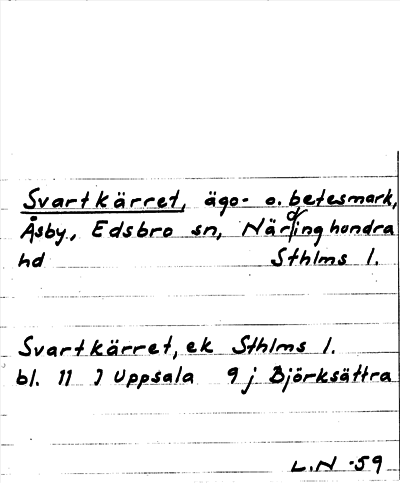 Svartkärret, ägo- o. betesmark,
Åsby, Edsbro sn, Närdinghundra
hd Sthlms l.
Svartkärret, ek Sthlms l.
bl. 11 I Uppsala 9 j Björksättra
L.N -59